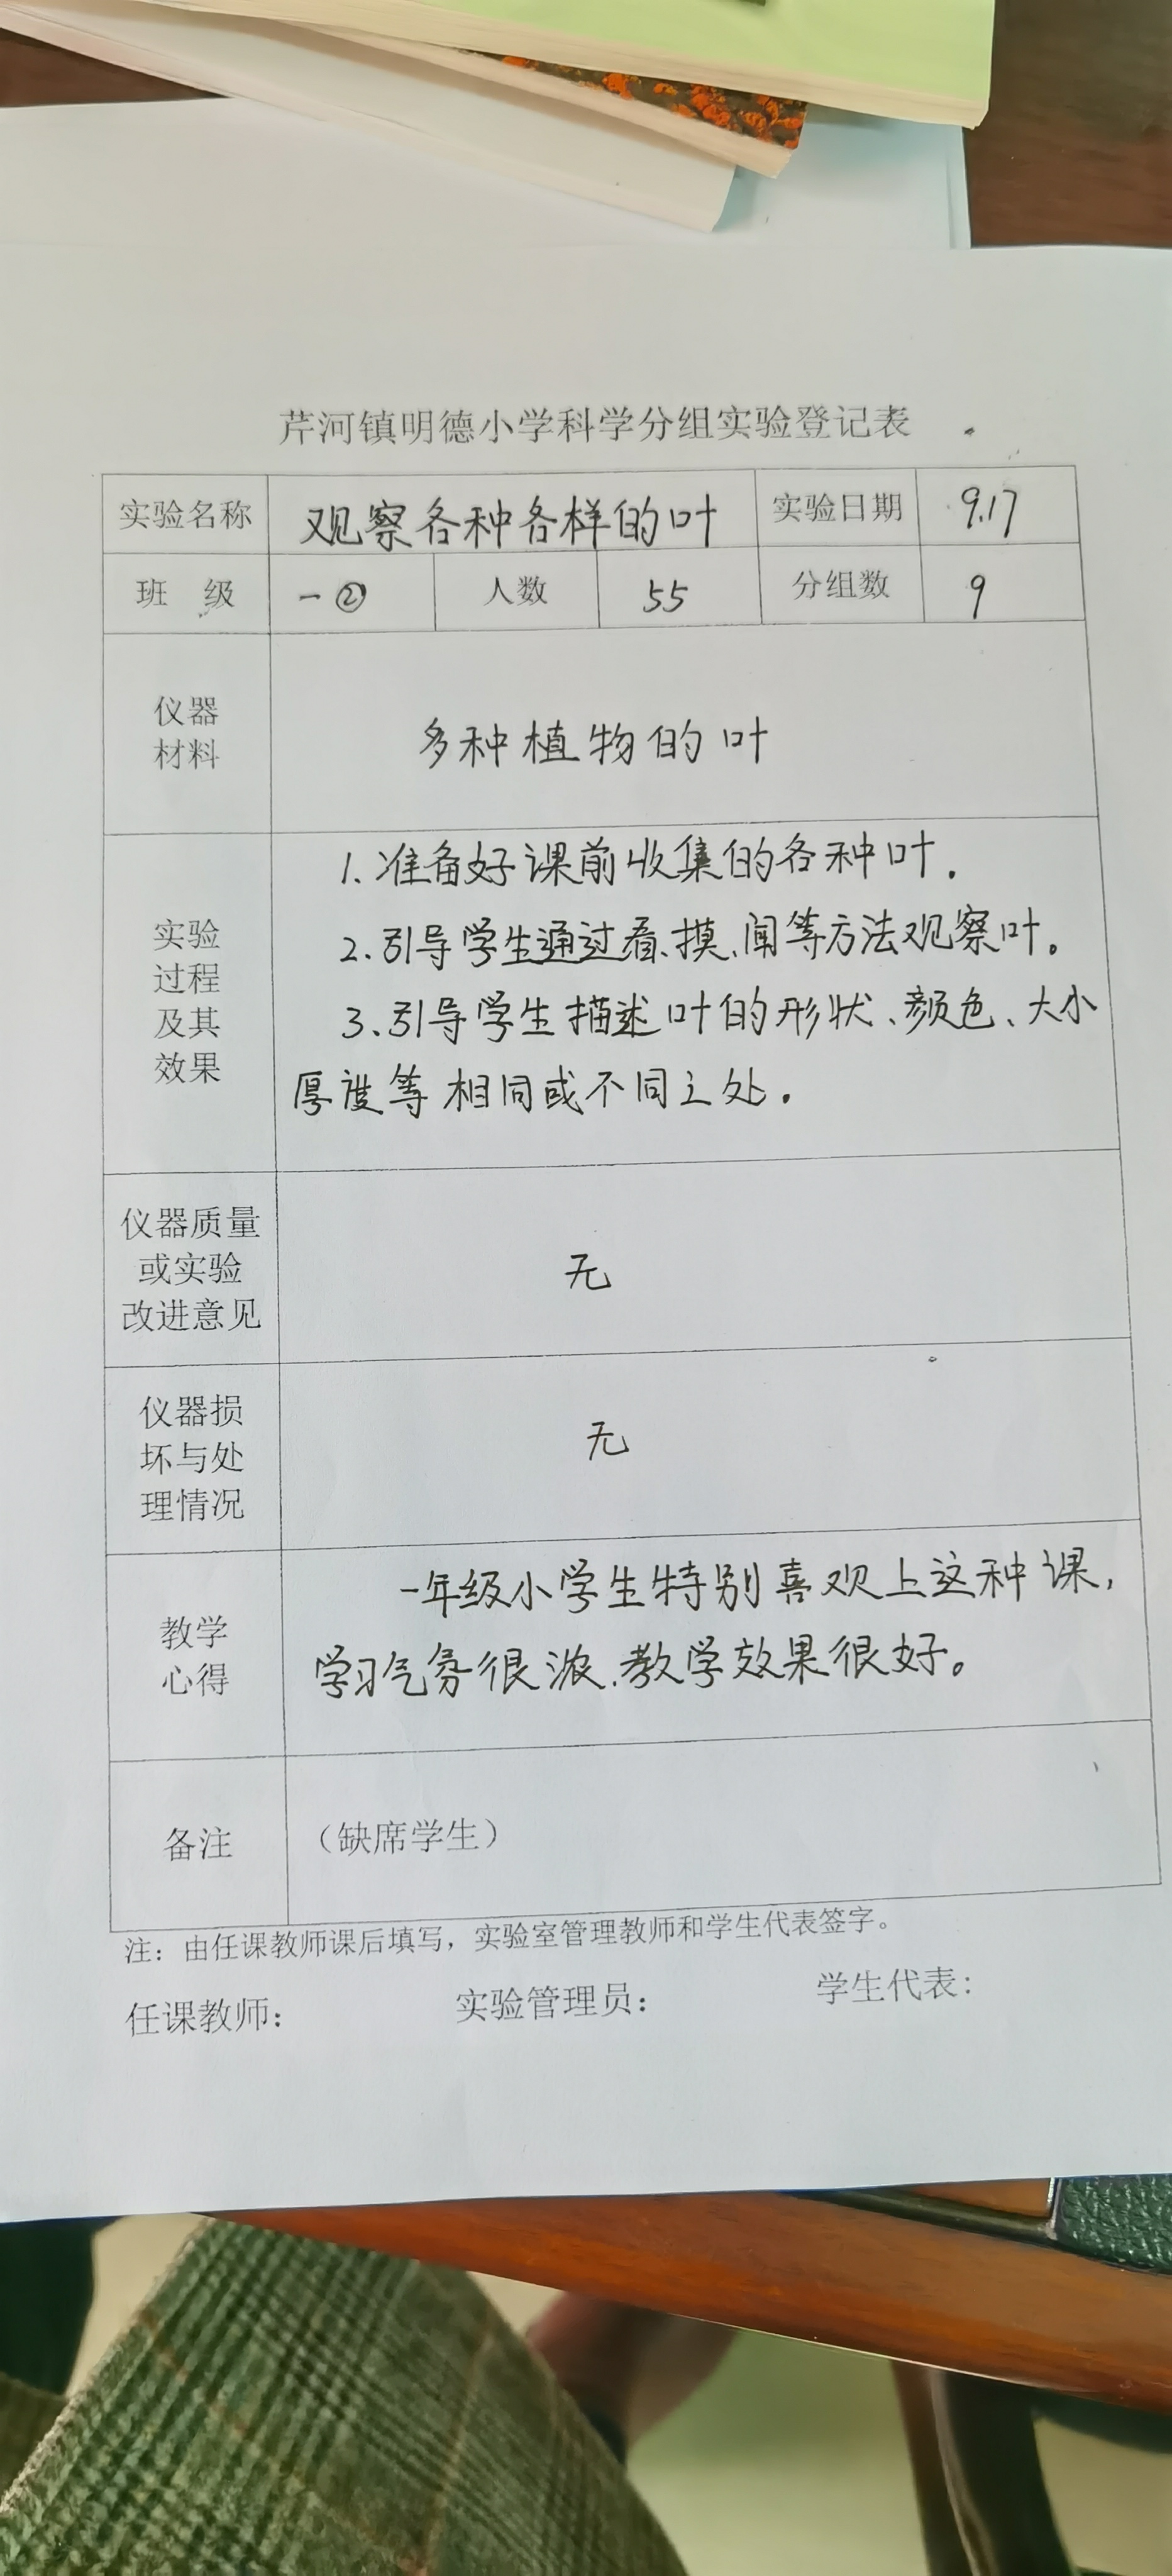 芹河镇明德小学科学分组实验登记表
实验名称 观察各种各样的叶 实验日期 9.17
班 级 一② 人数 55 分组数 9
仪器
材料
多种植物的叶
实验
过程
及其
效果
1.准备好课前收集的各种叶.
2.引导学生通过看、摸、闻等方法观察叶。
3.引导学生描述叶的形状、颜色、大小
厚度等相同或不同之处.
仪器质量
或实验
改进意见
无
仪器损
坏与处
理情况
无
教学
心得
一年级小学生特别喜观上这种课,
学习气氛很浓.教学效果很好。
备注
（缺席学生）
注：由任课教师课后填写，实验室管理教师和学生代表签字。
任课教师： 实验管理员： 学生代表：